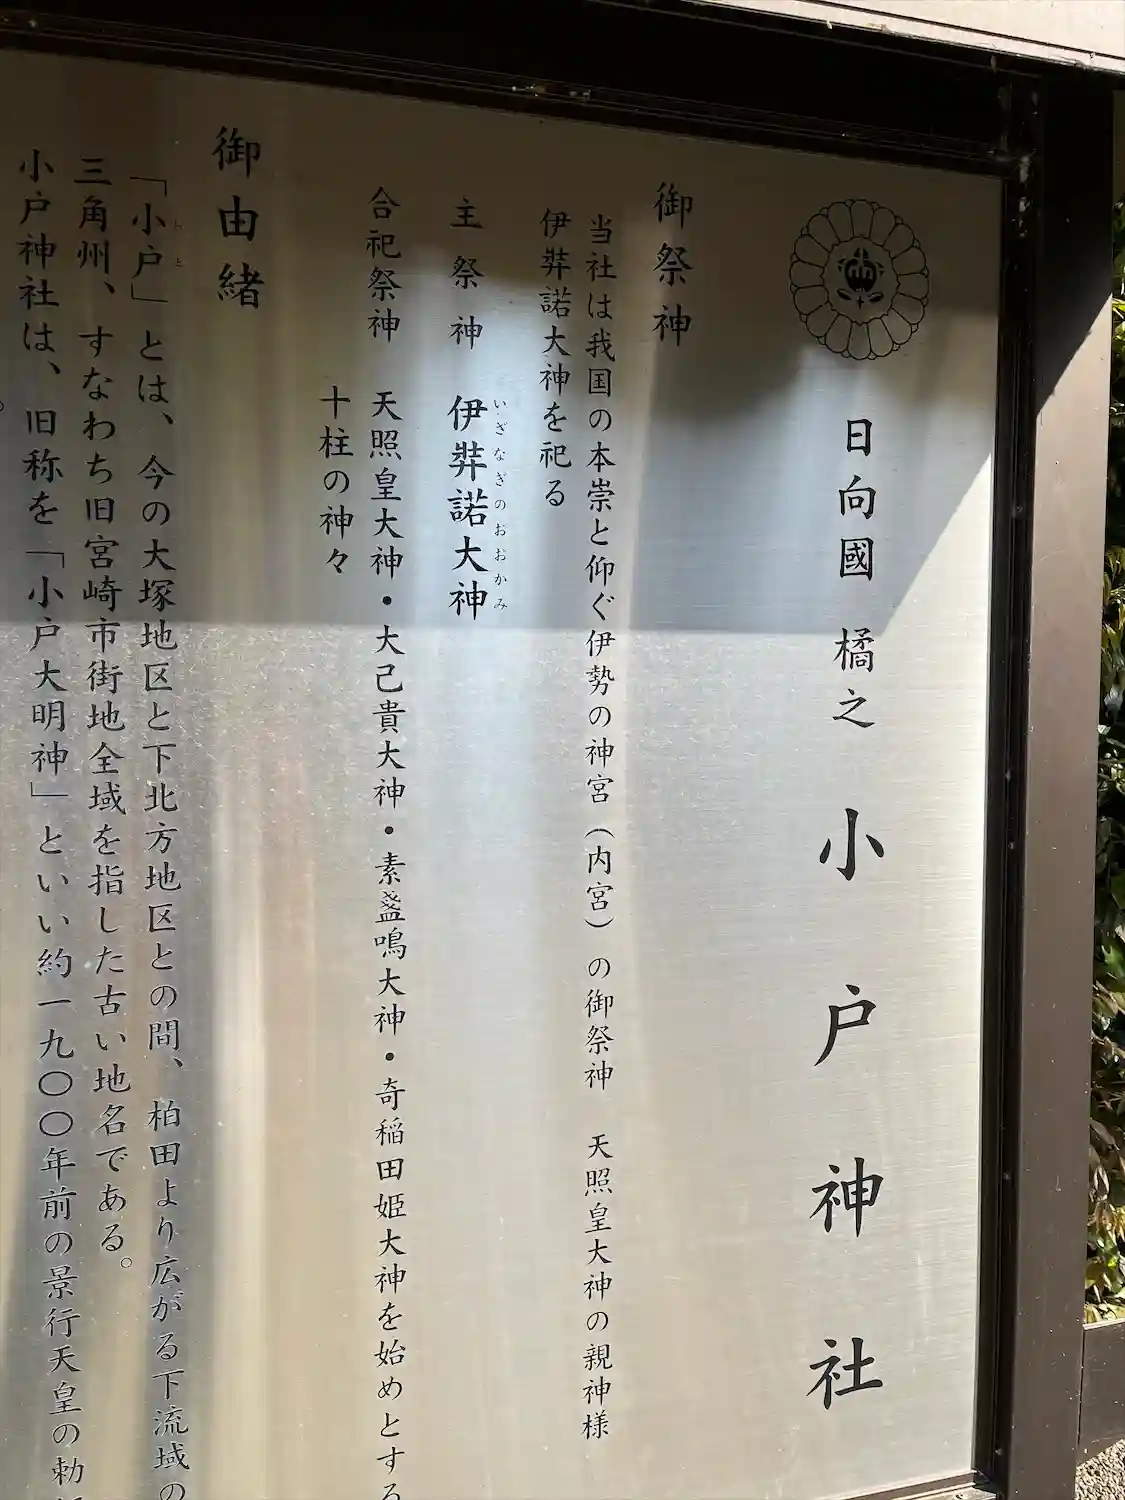 日向國 橘之 小戸神社
御祭神
当社は我国の本崇と仰ぐ伊勢の神宮（内宮）の御祭神 天照皇大神の親神様
伊弉諾大神を祀る
主祭神 伊弉諾大神
いざなぎのおおかみ
合祀祭神 天照皇大神・大己貴大神・素盞鳴大神・奇稲田姫大神を始めとする
十柱の神々
御由緒
「小戸」とは、今の大塚地区と下北方地区との間、柏田より広がる下流域の
三角州、すなわち旧宮崎市街地全域を指した古い地名である。
小戸神社は、旧称を「小戸大明神」といい約一九〇〇年前の景行天皇の勅